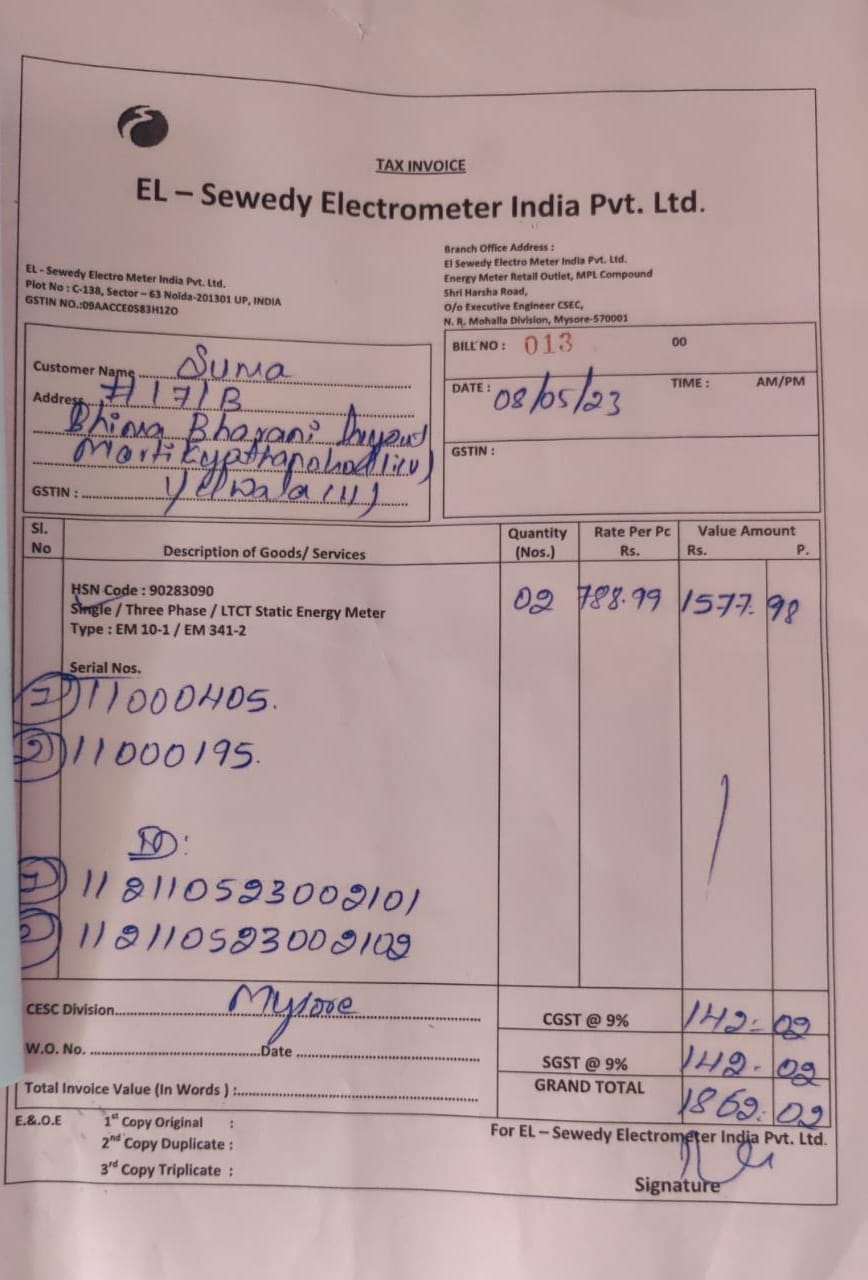 TAX INVOICE
EL – Sewedy Electrometer India Pvt. Ltd.
EL - Sewedy Electro Meter India Pvt. Ltd.
Plot No : C-138, Sector – 63 Noida-201301 UP, INDIA
GSTIN NO.:09AACCE0583H1ZO
Branch Office Address :
El Sewedy Electro Meter India Pvt. Ltd.
Energy Meter Retail Outlet, MPL Compound
Shri Harsha Road,
O/o Executive Engineer CSEC,
N. R. Mohalla Division, Mysore-570001
Customer Name Suma
Address # 171B
Bhima Bharani
GSTIN : Yelwala (H)
BILL NO : 013 00
DATE : 08/05/23 TIME : AM/PM
GSTIN :
Sl. No Description of Goods/ Services Quantity (Nos.) Rate Per Pc Rs. Value Amount Rs. P.
HSN Code : 90283090 02 788.99 1577. 98
Single / Three Phase / LTCT Static Energy Meter
Type : EM 10-1 / EM 341-2
Serial Nos.
1) 11000405.
2) 11000195.
ID:
1) 112110523002101
2) 112110523002102
CESC Division Mysore CGST @ 9% 142. 02
W.O. No. Date SGST @ 9% 142. 02
Total Invoice Value (In Words ) : GRAND TOTAL 1862. 02
E.&.O.E 1st Copy Original :
2nd Copy Duplicate :
3rd Copy Triplicate :
For EL – Sewedy Electrometer India Pvt. Ltd.
Signature